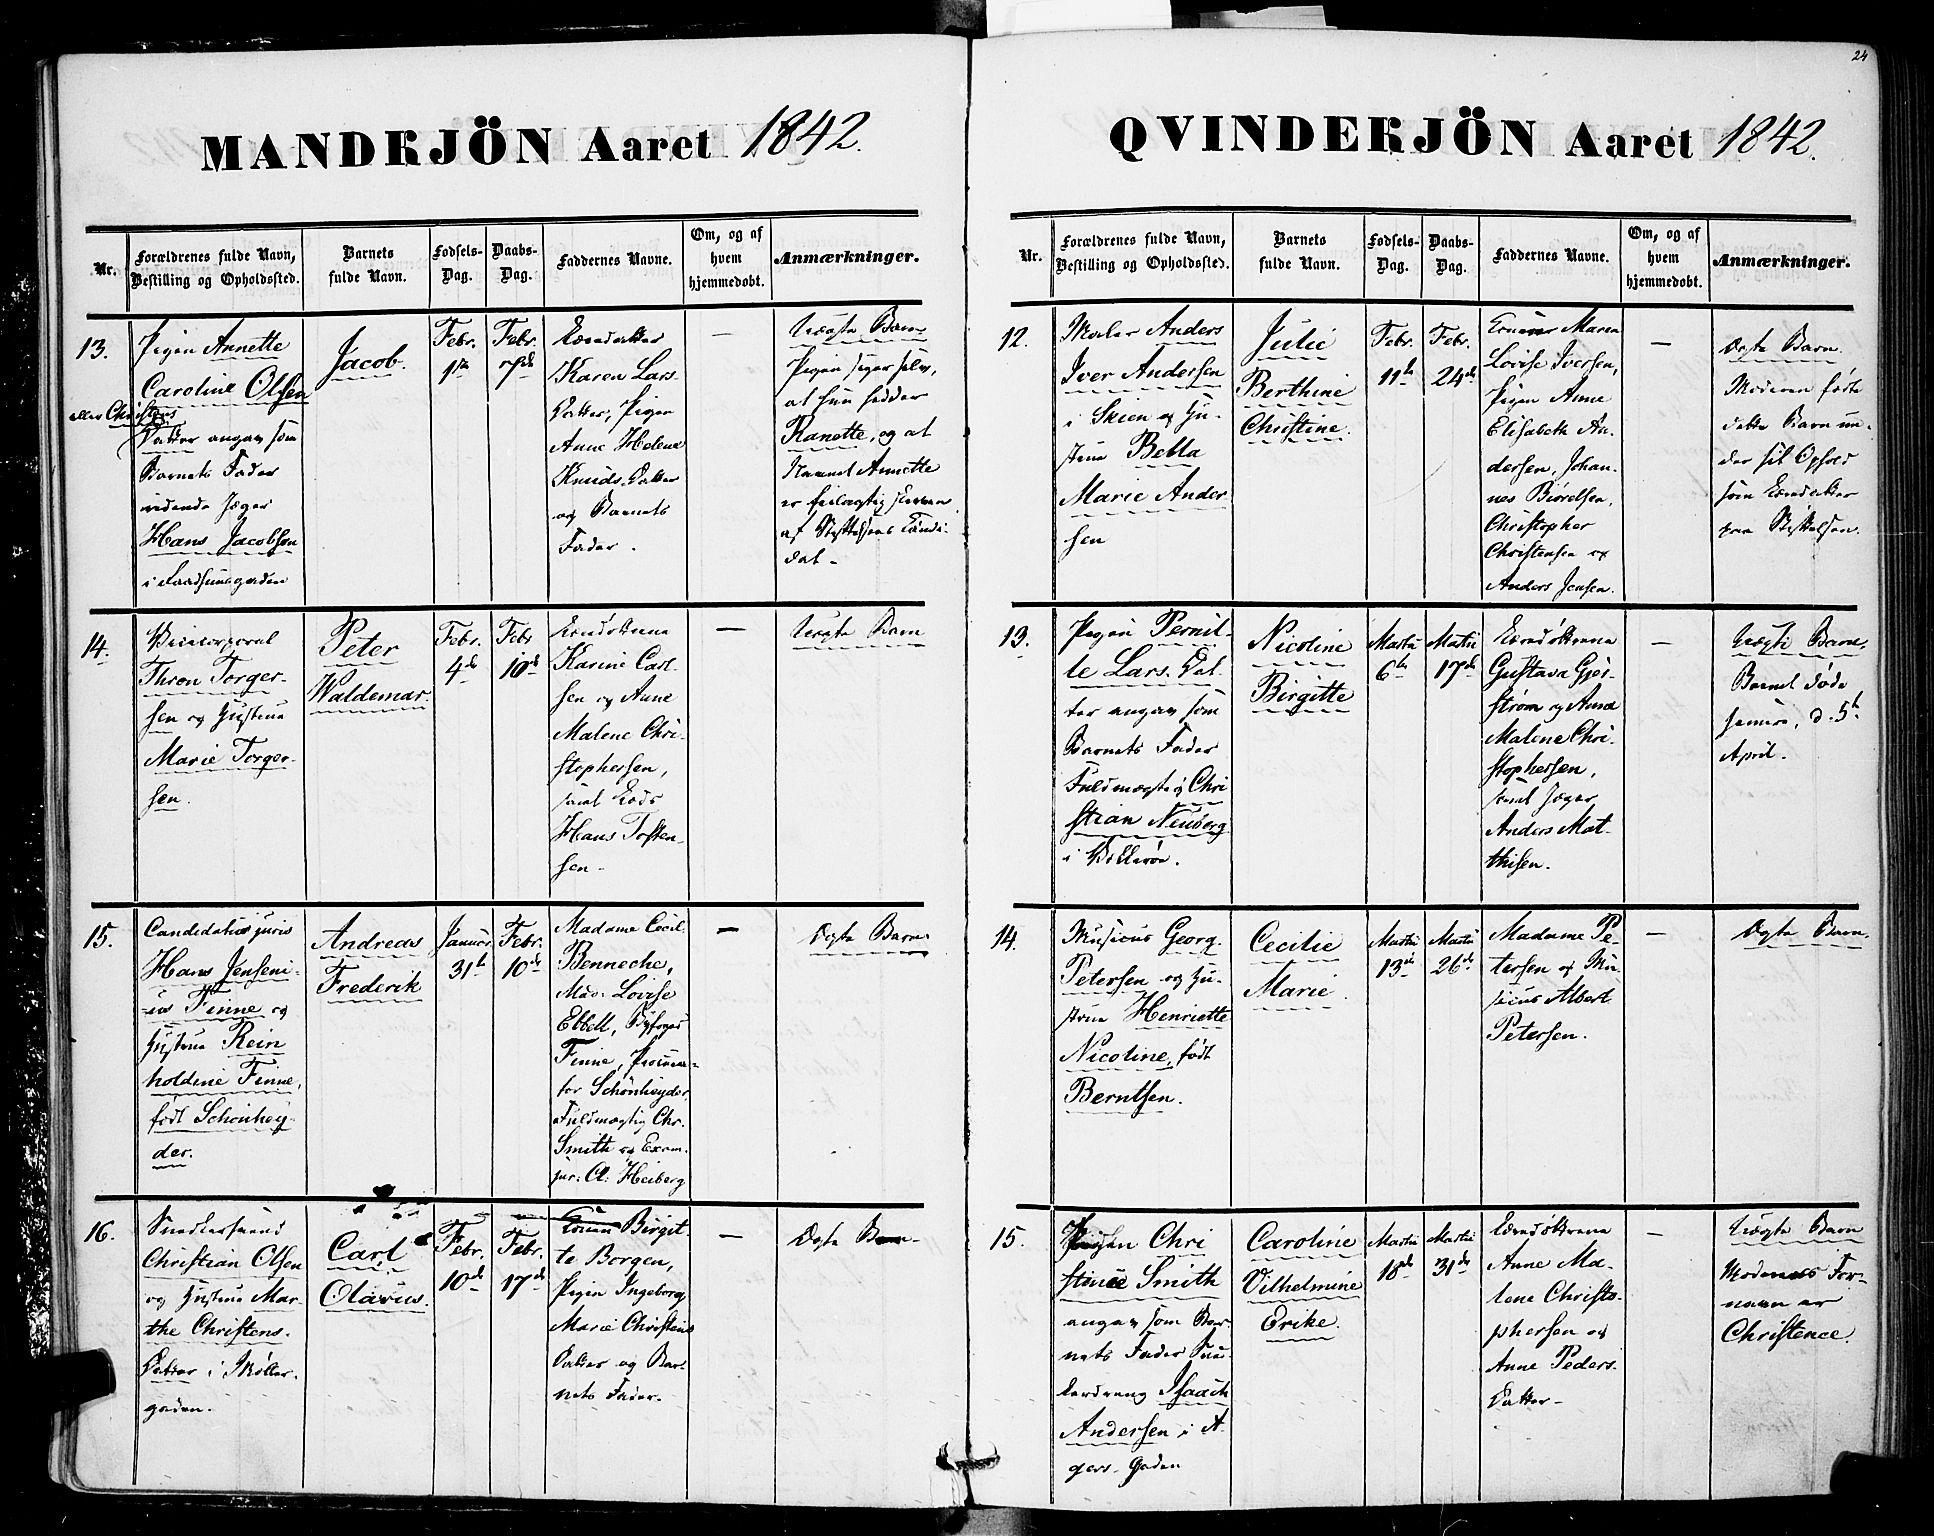 24
MANDKJÖN Aaret 1842.
Nr.
Forældrenes fulde Navn,
Bestilling og Opholdssted.
Barnets
fulde Navn.
Fødsels-
Dag.
Daabs-
Dag.
Faddernes Navne.
Om, og af
hvem
hjemmedøbt.
Anmærkninger.
13.
Pigen Annette
Caroline Olsen
eller Christens
Datter angav som
Barnets Fader
Jæger
Hans Jacobsen
i
Jacob.
Febr.
1ste
Febr.
7de
Karen Lars-
Datter, Pigen
Anne Helene
Knuds Datter
og Barnets
Fader.
—
Uægte Barn
Pigen siger selv,
at hun hedder
Ranette, og at
Navnet Annette
er feilagtig skreven
af Stiftelsens Candi-
dat.
14.
Vicecorporal
Thron Torger-
sen og Hustrue
Marie Torger-
sen.
Peter
Waldemar.
Febr.
4de
Febr
10de
Karine Carl-
sen og Anne
Malene Chri-
stophersen,
samt
Hans Tosten-
sen.
—
Uægte Barn
15.
Candidatus juris
Hans Jenseni-
us Finne og
Hustrue Rein
holdine Finne,
født Schönhey-
der.
Andreas
Frederik
Januar
31te
Febr.
10de
Madame Cecil.
Benneche,
Mad. Lovise
Ebbell, Byfoged
Finne, Procura-
tor Schönheyder
Fuldmægtig Chr.
Smith og Exam.
jur. Cl. Heiberg
—
Ægte Barn.
16.
Snedkersvend
Christian Olsen
og Hustrue Mar-
the Christens-
Datter i Møller-
gaden.
Carl
Olavus.
Febr.
10de
Febr.
17de
Konen Birgit-
te Borgen,
Pigen Ingeborg
Marie Christens
Datter og Bar-
nets Fader.
—
Ægte Barn.
QVINDEKJÖN Aaret 1842.
Nr.
Forældrenes fulde Navn,
Bestilling og Opholdssted.
Barnets
fulde Navn.
Fødsels-
Dag.
Daabs-
Dag.
Faddernes Navne.
Om, og af
hvem
hjemmedøbt.
Anmærkninger.
12.
Maler Anders
Iver Andersen
i Skien og Hu-
strue Bella
Marie Ander
sen
Julie
Berthine
Christine.
Febr.
11te
Febr.
24de
Konen Maren
Lovise Iversen,
Pigen Anne
Elisabeth An-
dersen, Johan-
nes Biørelsen,
Christopher
Christensen og
Anders Jensen.
—
Ægte Barn.
Moderen fødte
dette Barn un-
der sit Ophold
som
paa Stiftelsen.
13.
Pigen Pernil-
le Lars Dat-
ter angav som
Barnets Fader
Fuldmægtig Chri
stian Neuberg
i
Nicoline
Birgitte
Martii
6te
Martii
17de
Gustava Gjer-
strøm og Anne
Malene Chri-
stophersen,
samt Jæger
Anders Mat-
thisen.
—
Uægte Barn.
Barnet døde
samme, d. 5te
April.
14.
Musicus Georg
Petersen og Hu-
strue Henriette
Nicoline, født
Berntsen.
Cecilie
Marie
Martii
13de
Martii
26de
Madame Pe-
tersen og Mu-
sicus Albert
Petersen.
—
Ægte Barn.
15.
Pigen Chri
stine Smith
angav som Bar-
nets Fader Sne-
kerdreng Isaach
Andersen i A-
gers-Gaden
Caroline
Vilhelmine
Erike.
Martii
18de
Martii
31de
Anne Ma-
lene Christo-
phersen og
Anne Peders
Datter
—
Uægte Barn
Moderens For-
navn er
Christence.